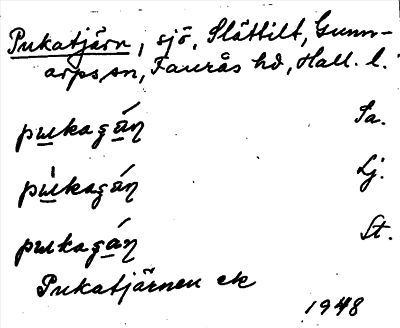 Pukatjärn, sjö, Slättilt, Gunn-
arps sn, Faurås hd, Hall. l.
pukagán Ia.
pùkagán Lj.
pukagán St.
Pukatjärnen ek
1948